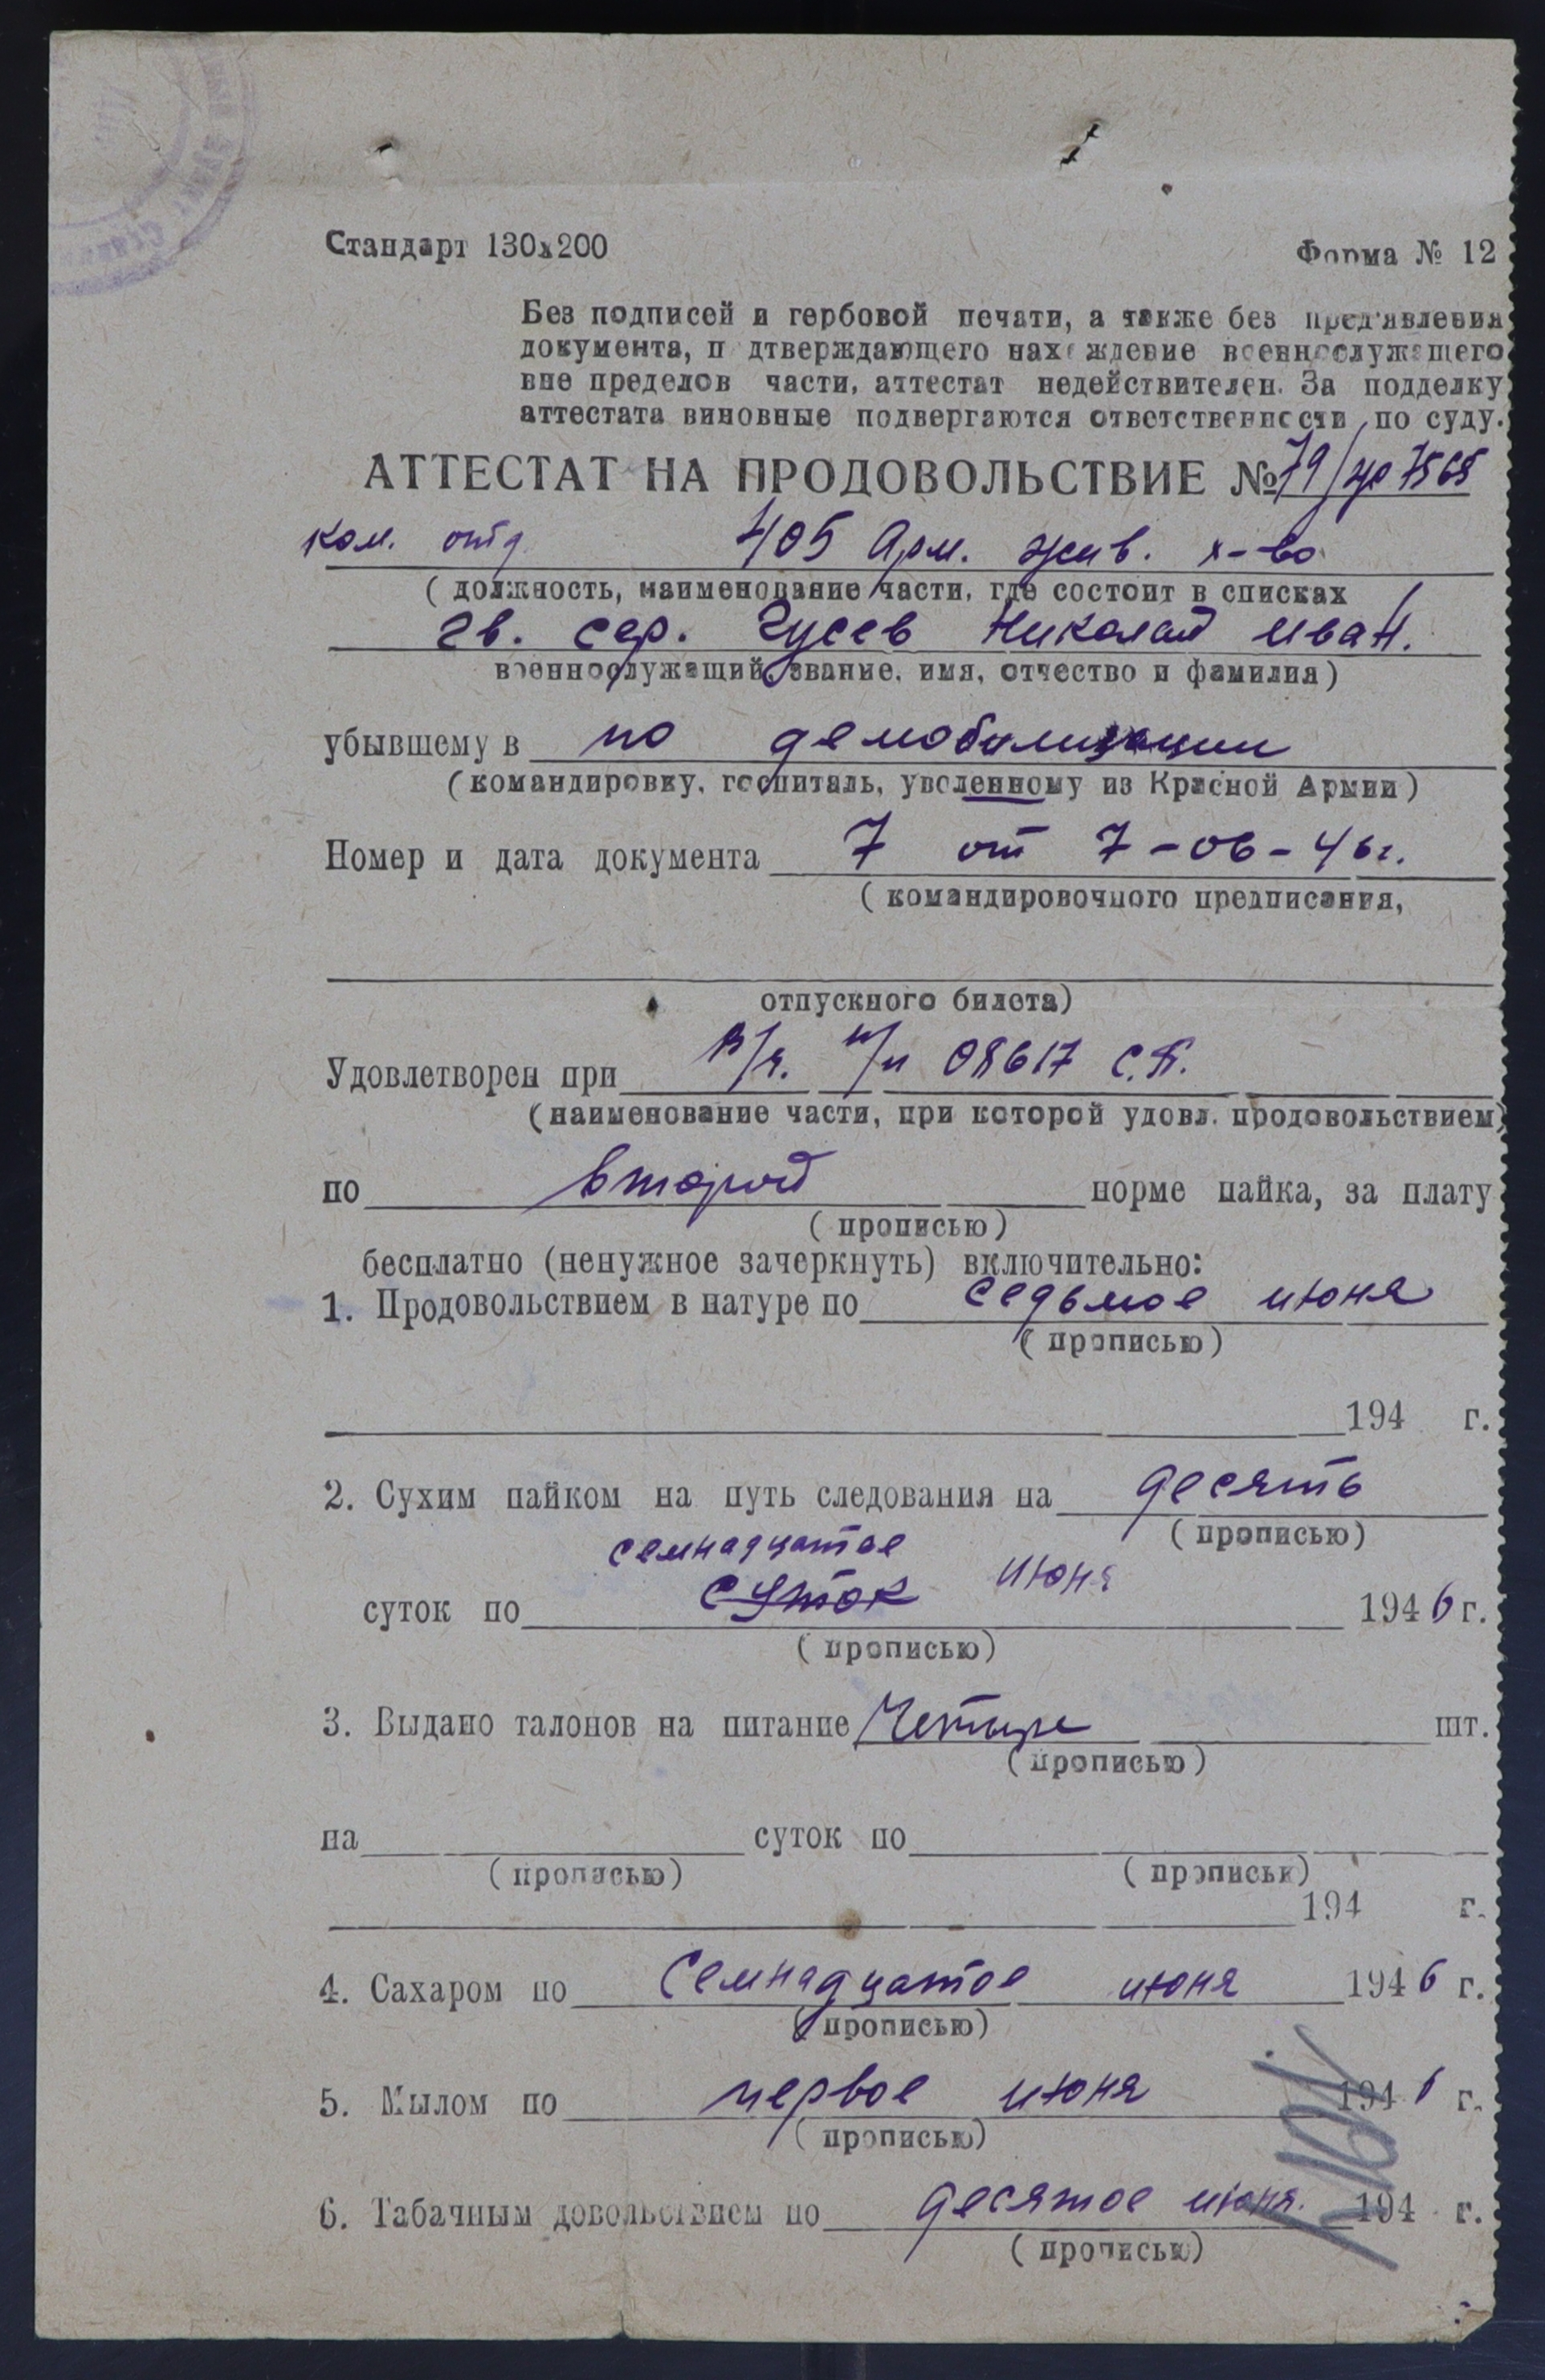 Стандарт 130х200
Форма № 12
Без подписей и гербовой печати, а также без пред'явления
документа, п дтверждающего нахождение военнослужащего
вне пределов части, аттестат недействителен. За подделку
аттестата виновные подвергаются ответственности по суду.
АТТЕСТАТ НА ПРОДОВОЛЬСТВИЕ № 79/ 7565
ком. отд 405 Арм. жив. х-во
(должность, наименование части, где состоит в списках
гв. сер. Гусев Николай Иван.
военнослужащий, звание, имя, отчество и фамилия)
убывшему в по демобилизации
(командировку, госпиталь, уволенному из Красной Армии)
Номер и дата документа 7 от 7-06-46г.
(командировочного предписания,
отпускного билета)
Удовлетворен при в/ч. п/п 08617 С.П.
(наименование части, при которой удовл. продовольствием)
по второй норме пайка, за плату
(прописью)
бесплатно (ненужное зачеркнуть) включительно:
1. Продовольствием в натуре по седьмое июня
(прописью)
194 г.
2. Сухим пайком на путь следования на десять
(прописью)
семнадцатое
суток по суток июня 1946 г.
(прописью)
3. Выдано талонов на питание Четыре шт.
(прописью)
на суток по
(прописью) (прописью)
194 г.
4. Сахаром по Семнадцатое июня 1946 г.
(прописью)
5. Мылом по первое июня 1946 г.
(прописью)
6. Табачным довольствием по десятое июня. 194 г.
(прописью)